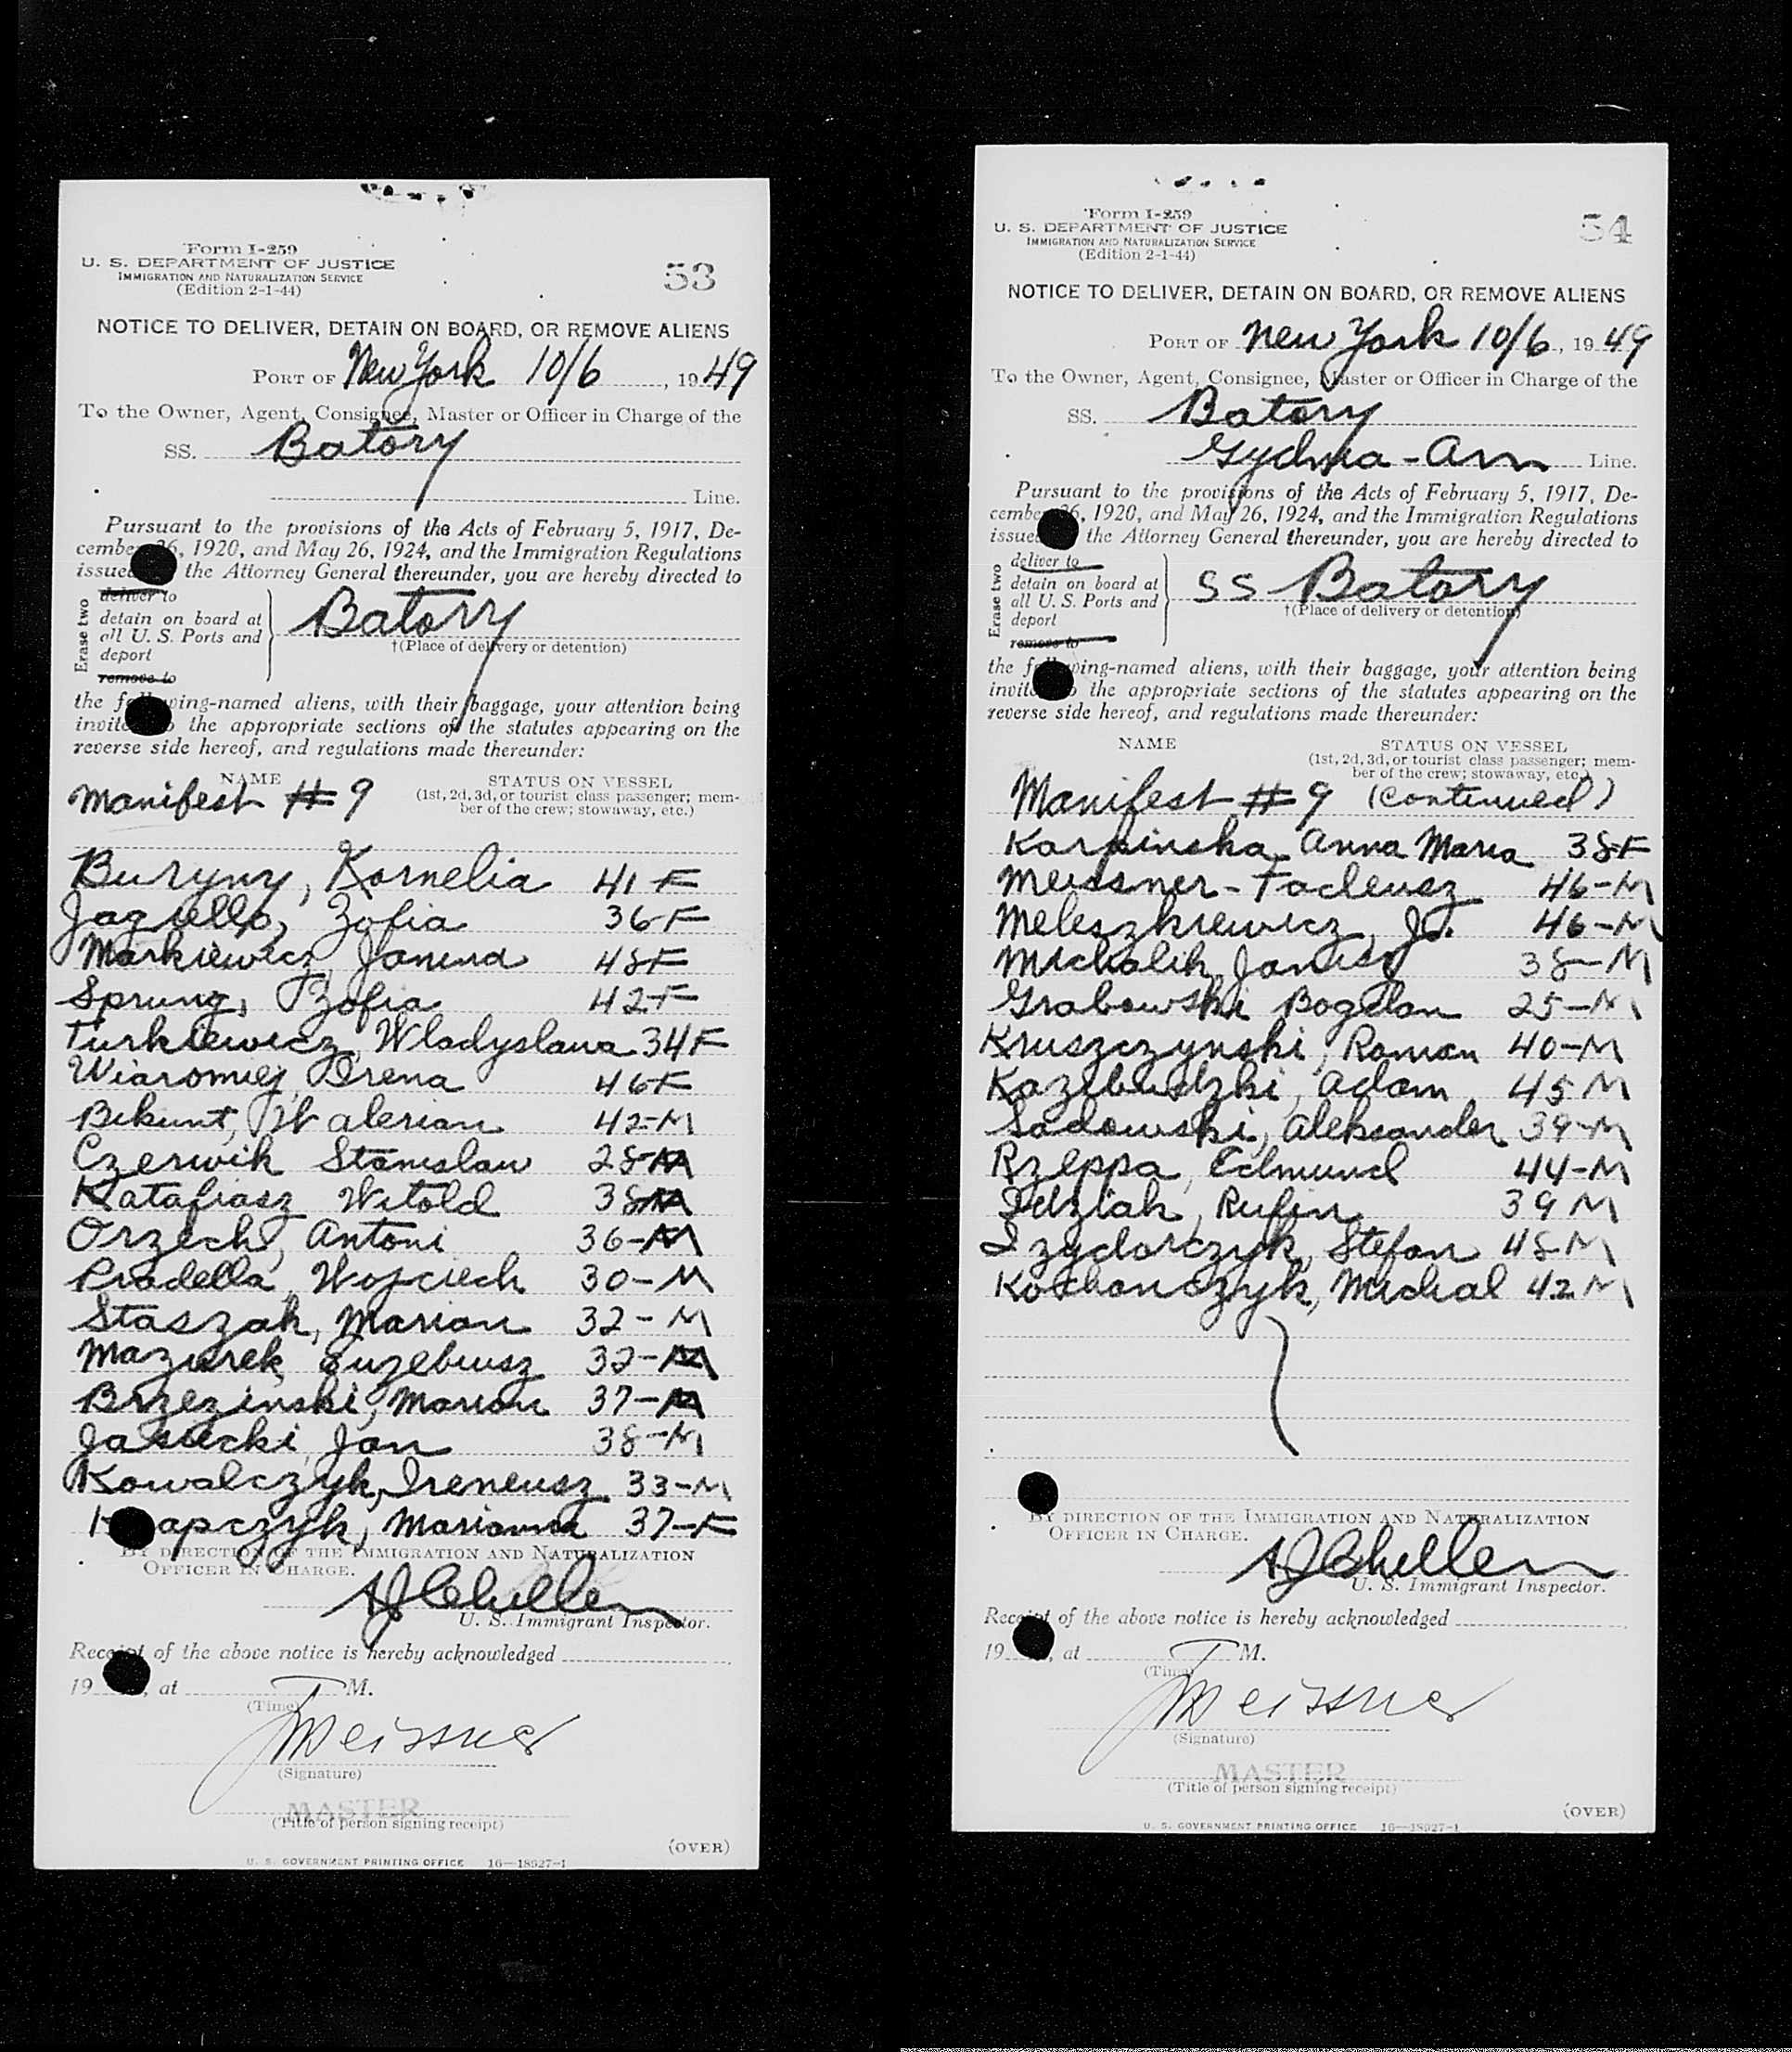 Form I-259
U. S. DEPARTMENT OF JUSTICE
IMMIGRATION AND NATURALIZATION SERVICE
(Edition 2-1-44)
53
NOTICE TO DELIVER, DETAIN ON BOARD, OR REMOVE ALIENS
PORT OF New York 10/6, 1949
To the Owner, Agent, Consignee, Master or Officer in Charge of the
SS. Batory
Line.
Pursuant to the provisions of the Acts of February 5, 1917, De-
cember 26, 1920, and May 26, 1924, and the Immigration Regulations
issued the Attorney General thereunder, you are hereby directed to
Erase two
deliver to
detain on board at
all U. S. Ports and
deport
remove to
Batory
†(Place of delivery or detention)
the following-named aliens, with their baggage, your attention being
invited to the appropriate sections of the statutes appearing on the
reverse side hereof, and regulations made thereunder:
NAME
STATUS ON VESSEL
(1st, 2d, 3d, or tourist class passenger; mem-
ber of the crew; stowaway, etc.)
Manifest # 9
Buryny, Kornelia 41 F
Jagiello, Zofia 36 F
Markiewicz, Janina 48 F
Sprung, Zofia 42 F
Turkiewicz, Wladyslawa 34 F
Wiaromiej, Irena 46 F
Bikunt, Walerian 42-M
Czerwik Stanislaw 28 M
Katafiasz Witold 38 M
Orzech, Antoni 36-M
Pradella, Wojciech 30-M
Staszak, Marian 32-M
Mazurek, Euzebiusz 32-M
Brzezinski, Marian 37-M
Jasiecki, Jan 38-M
Kowalczyk, Ireneusz 33-M
apczyk, Marianna 37-F
BY DIRECTION OF THE IMMIGRATION AND NATURALIZATION
OFFICER IN CHARGE.
U. S. Immigrant Inspector.
Receipt of the above notice is hereby acknowledged
19 , at M.
(Time)
Meissner
(Signature)
MASTER
(Title of person signing receipt)
(OVER)
U. S. GOVERNMENT PRINTING OFFICE 16—18927-1
Form I-259
U. S. DEPARTMENT OF JUSTICE
IMMIGRATION AND NATURALIZATION SERVICE
(Edition 2-1-44)
54
NOTICE TO DELIVER, DETAIN ON BOARD, OR REMOVE ALIENS
PORT OF New York 10/6, 1949
To the Owner, Agent, Consignee, Master or Officer in Charge of the
SS. Batory
Gydnia-Am Line.
Pursuant to the provisions of the Acts of February 5, 1917, De-
cember 26, 1920, and May 26, 1924, and the Immigration Regulations
issued the Attorney General thereunder, you are hereby directed to
Erase two
deliver to
detain on board at
all U. S. Ports and
deport
remove to
SS Batory
†(Place of delivery or detention)
the following-named aliens, with their baggage, your attention being
invited to the appropriate sections of the statutes appearing on the
reverse side hereof, and regulations made thereunder:
NAME
STATUS ON VESSEL
(1st, 2d, 3d, or tourist class passenger; mem-
ber of the crew; stowaway, etc.)
Manifest # 9 (Continued)
Karpinska Anna Maria 38 F
Meissner-Tadeusz 46-M
Meleszkiewicz, Jo. 46-M
Michalik, Janusz 38-M
Grabowski Bogdan 25-M
Kruszczynski, Roman 40-M
Kazibudzki, Adam 45 M
Sadowski, Aleksander 39-M
Rzeppa, Edmund 44-M
Idziak, Rufin 39 M
Izydorczyk, Stefan 48-M
Kochanczyk, Michal 42 M
BY DIRECTION OF THE IMMIGRATION AND NATURALIZATION
OFFICER IN CHARGE.
U. S. Immigrant Inspector.
Receipt of the above notice is hereby acknowledged
19 , at M.
(Time)
Meissner
(Signature)
MASTER
(Title of person signing receipt)
(OVER)
U. S. GOVERNMENT PRINTING OFFICE 16—18927-1